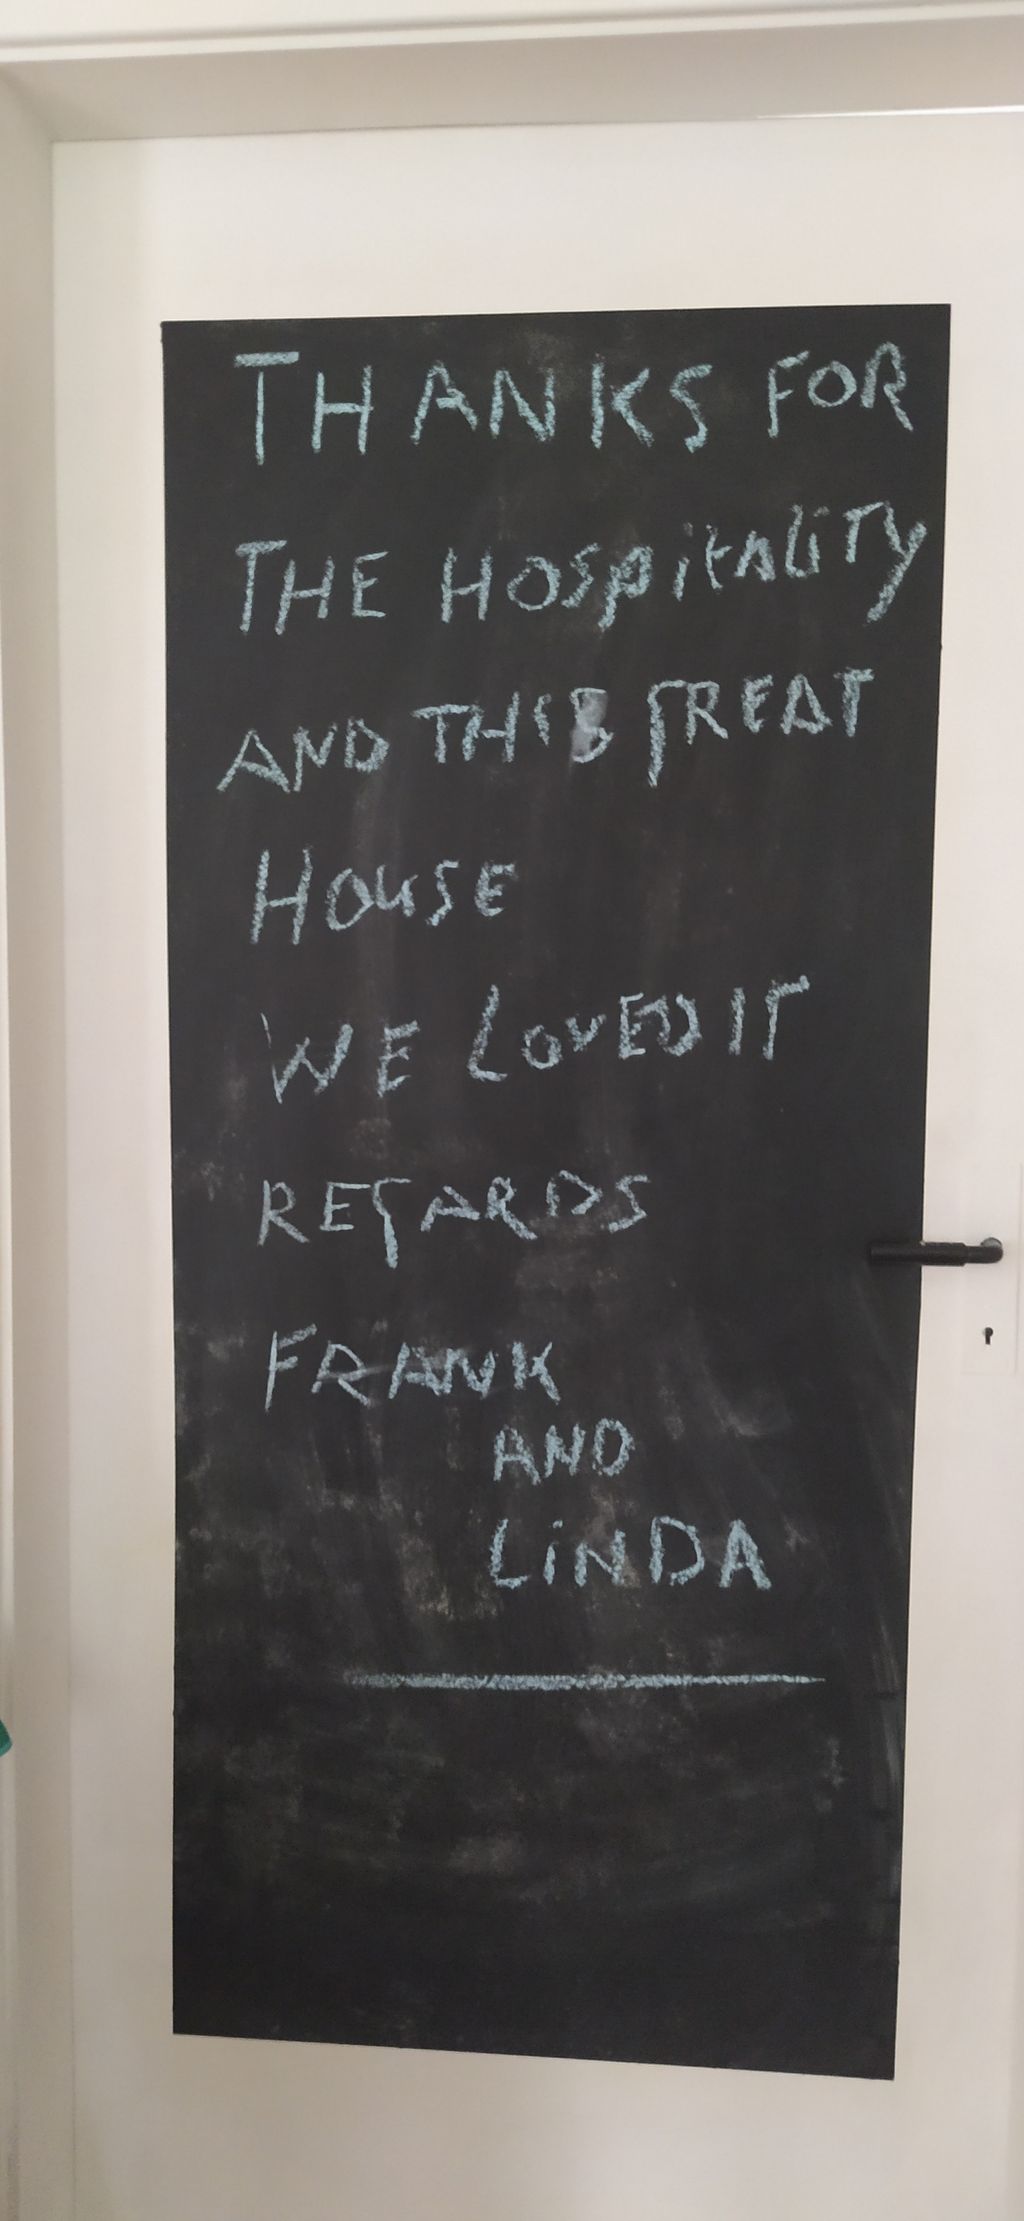 THANKS FOR
THE HOSPiTALiTY
AND THIS GREAT
HOUSE
WE LOVED IT
REGARDS
FRANK
AND
LiNDA